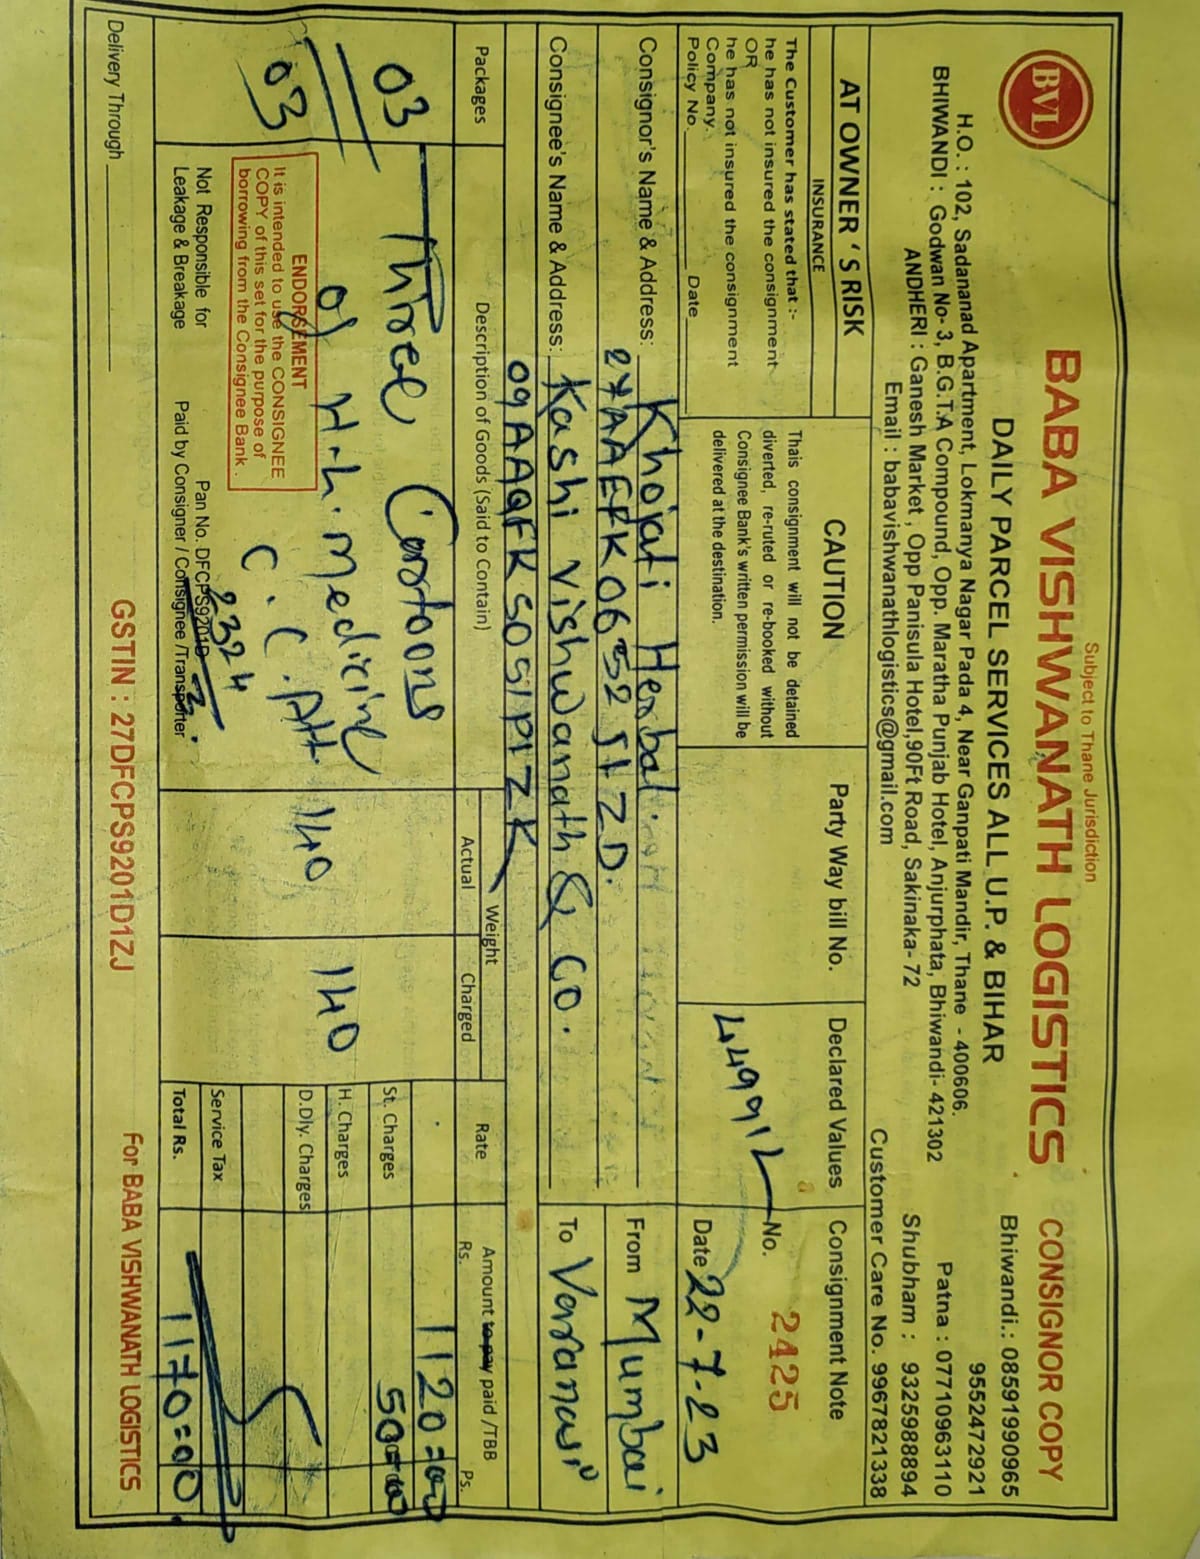 Subject to Thane Jurisdiction
BVL
BABA VISHWANATH LOGISTICS
CONSIGNOR COPY
DAILY PARCEL SERVICES ALL U.P. & BIHAR
Bhiwandi.: 08591990965
9552472921
H.O. : 102, Sadanand Apartment, Lokmanya Nagar Pada 4, Near Ganpati Mandir, Thane - 400606.
Patna : 07710963110
BHIWANDI : Godwan No- 3, B.G.T.A Compound, Opp. Maratha Punjab Hotel, Anjurphata, Bhiwandi- 421302
Shubham : 9325988894
ANDHERI : Ganesh Market , Opp Panisula Hotel,90Ft Road, Sakinaka- 72
Email : babavishwanathlogistics@gmail.com
Customer Care No. 9967821338
AT OWNER 'S RISK
INSURANCE
The Customer has stated that :-
he has not insured the consignment
OR
he has not insured the consignment
Company.
Policy No. Date
CAUTION
Thais consignment will not be detained
diverted, re-ruted or re-booked without
Consignee Bank's written permission will be
delivered at the destination.
Party Way bill No.
Declared Values
44991/-
Consignment Note
No. 2425
Date 22-7-23
Consignor's Name & Address: Khojati Herbal
27AAEFK0652S1ZD.
From Mumbai
Consignee's Name & Address: Kashi Vishwanath & Co.
09AAQFK5051P1ZK
To Varanasi
Packages
Description of Goods (Said to Contain)
Weight
Actual
Charged
Rate
Amount to pay paid /TBB
Rs. Ps.
03
Three Cartoons
1120=00
St. Charges 50=00
of H.h. Medicine
140
140
H. Charges
C.C.Att
D.Dly. Charges
03
ENDORSEMENT
It is intended to use the CONSIGNEE
COPY of this set for the purpose of
borrowing from the Consignee Bank .
2324
Not Responsible for
Leakage & Breakage
Pan No. DFCPS9201D
Paid by Consigner / Consignee /Transporter
Service Tax
Total Rs. 1170=00
Delivery Through
GSTIN : 27DFCPS9201D1ZJ
For BABA VISHWANATH LOGISTICS